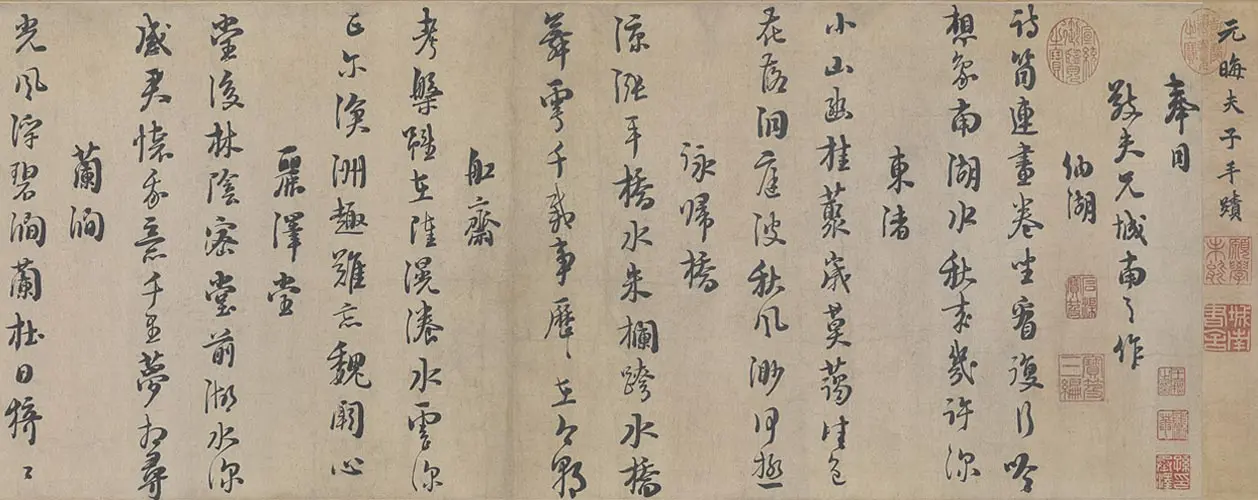 元晦夫子手蹟
奉同
敬夫兄城南之作
納湖
詩筒連畫卷坐看復行吟
想象南湖水秋來幾許深
東渚
小山幽桂叢歲莫藹佳色
花落洞庭波秋風渺何極
詠歸橋
淥漲平橋水朱欄跨水橋
舞雩千載事歷〻在今朝
舡齋
考槃雖在陸滉瀁水雲深
正爾滄洲趣難忘魏闕心
麗澤堂
堂後林陰密堂前湖水深
感君懷我意千里夢相尋
蘭澗
光風浮碧澗蘭杜日猗〻
宣統御覽之寶
寶笈三編